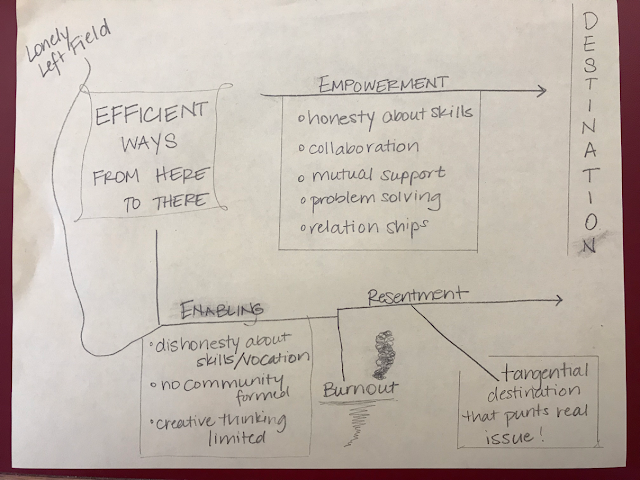 Lonely
Left Field
EFFICIENT
WAYS
FROM HERE
TO THERE
EMPOWERMENT
• honesty about skills
• collaboration
• mutual support
• problem solving
• relation ships
DESTINATION
ENABLING
• dishonesty about
skills/vocation
• no community
formed
• creative thinking
limited
Resentment
Burnout
tangential
destination
that punts real
issue!